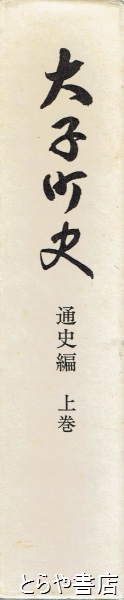 大子町史
通史編 上巻
とらや書店